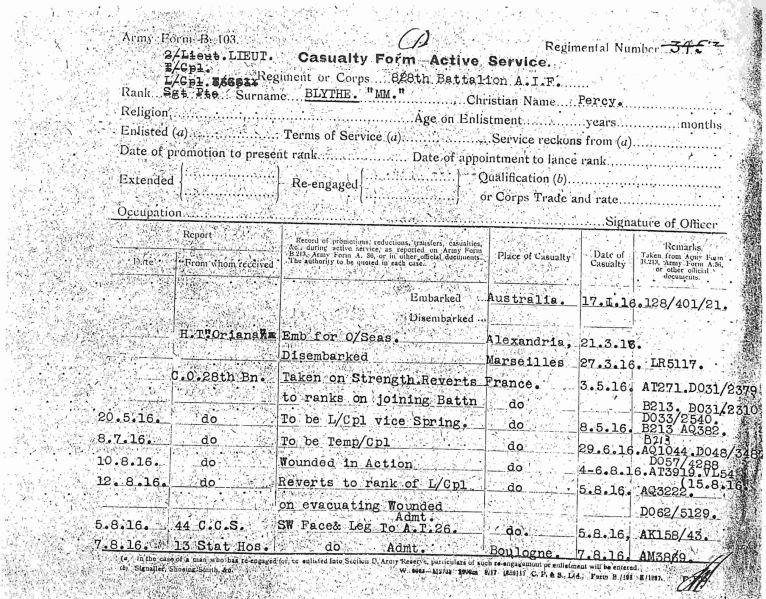 Army Form B. 103.
Regimental Number 3452
2/Lieut. LIEUT.
Casualty Form Active Service.
T/Cpl.
L/Cpl. Regiment or Corps 28th Battalion A.I.F.
Rank Sgt Pte Surname BLYTHE. "MM." Christian Name Percy.
Religion Age on Enlistment years months
Enlisted (a) Terms of Service (a) Service reckons from (a)
Date of promotion to present rank Date of appointment to lance rank
Extended Re-engaged Qualification (b)
or Corps Trade and rate
Occupation Signature of Officer
Report
Date From whom received
Record of promotions, reductions, transfers, casualties,
&c., during active service, as reported on Army Form
B.213, Army Form A. 36, or in other official documents.
The authority to be quoted in each case.
Place of Casualty
Date of
Casualty
Remarks
Taken from Army Form
B.213, Army Form A.36,
or other official
documents.
Embarked Australia. 17.1.16. 128/401/21.
Disembarked
H.T. "Oriana" Emb for O/Seas. Alexandria, 21.3.16.
Disembarked Marseilles 27.3.16. LR5117.
C.O.28th Bn. Taken on Strength.Reverts France. 3.5.16. AT271.D031/2379
to ranks on joining Battn do B213. D031/2310
D033/2540.
20.5.16. do To be L/Cpl vice Spring. do 8.5.16. B213 AQ382.
B213
8.7.16. do To be Temp/Cpl do 29.6.16. AQ1044.D048/348
D057/4288
10.8.16. do Wounded in Action do 4-6.8.16. AT3919.VL54
(15.8.16
12.8.16. do Reverts to rank of L/Cpl do 5.8.16. AQ3222.
on evacuating Wounded D062/5129.
Admt.
5.8.16. 44 C.C.S. SW Face& Leg To A.T.26. do. 5.8.16. AK158/43.
7.8.16. 13 Stat Hos. do Admt. Boulogne. 7.8.16. AM3869.
(a) In the case of a man who has re-engaged for, or enlisted into Section D, Army Reserve, particulars of such re-engagement or enlistment will be entered.
(b) Signaller, Shoeing-Smith, &c.
C. P. & S., Ltd. Form B./103